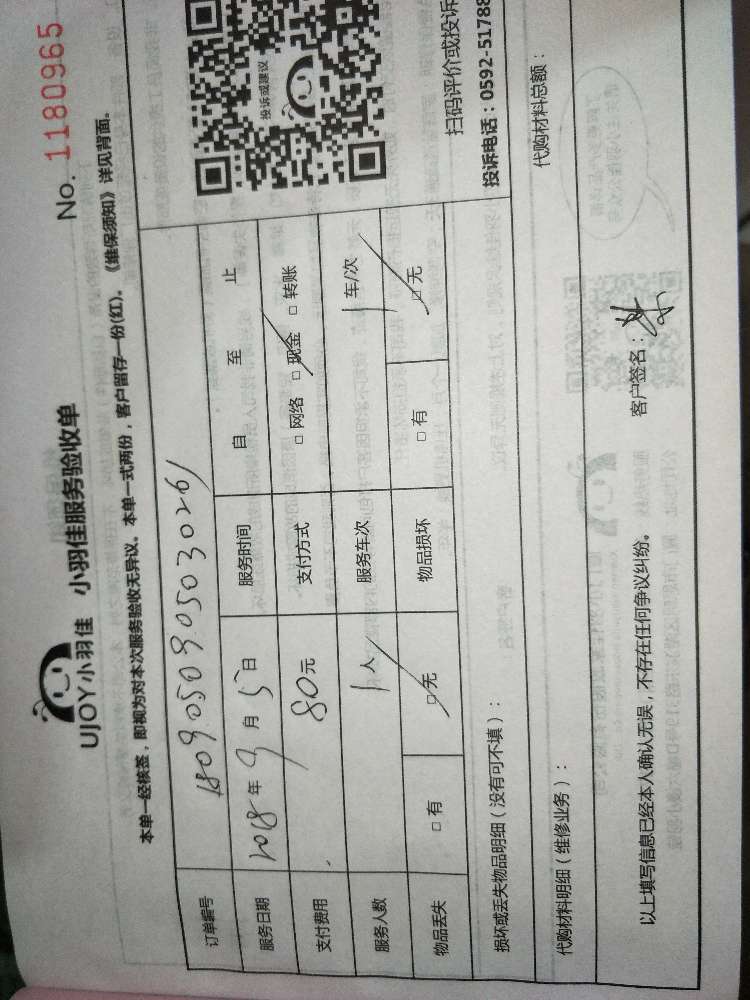 UJOY小羽佳 小羽佳服务验收单 No. 1180965
本单一经核签，即视为对本次服务验收无异议。本单一式两份，客户留存一份(红)。《维保须知》详见背面。
订单编号 1809050905030261
服务日期 2018年9月5日 服务时间 自 至 止
支付费用 80元 支付方式 □网络 □现金 □转账
服务人数 1人 服务车次 1车/次
物品丢失 □有 □无 物品损坏 □有 □无
投诉或建议
扫码评价或投诉
投诉电话：0592-51788
损坏或丢失物品明细（没有可不填）：
代购材料明细（维修业务）： 代购材料总额：
以上填写信息已经本人确认无误，不存在任何争议纠纷。 客户签名：